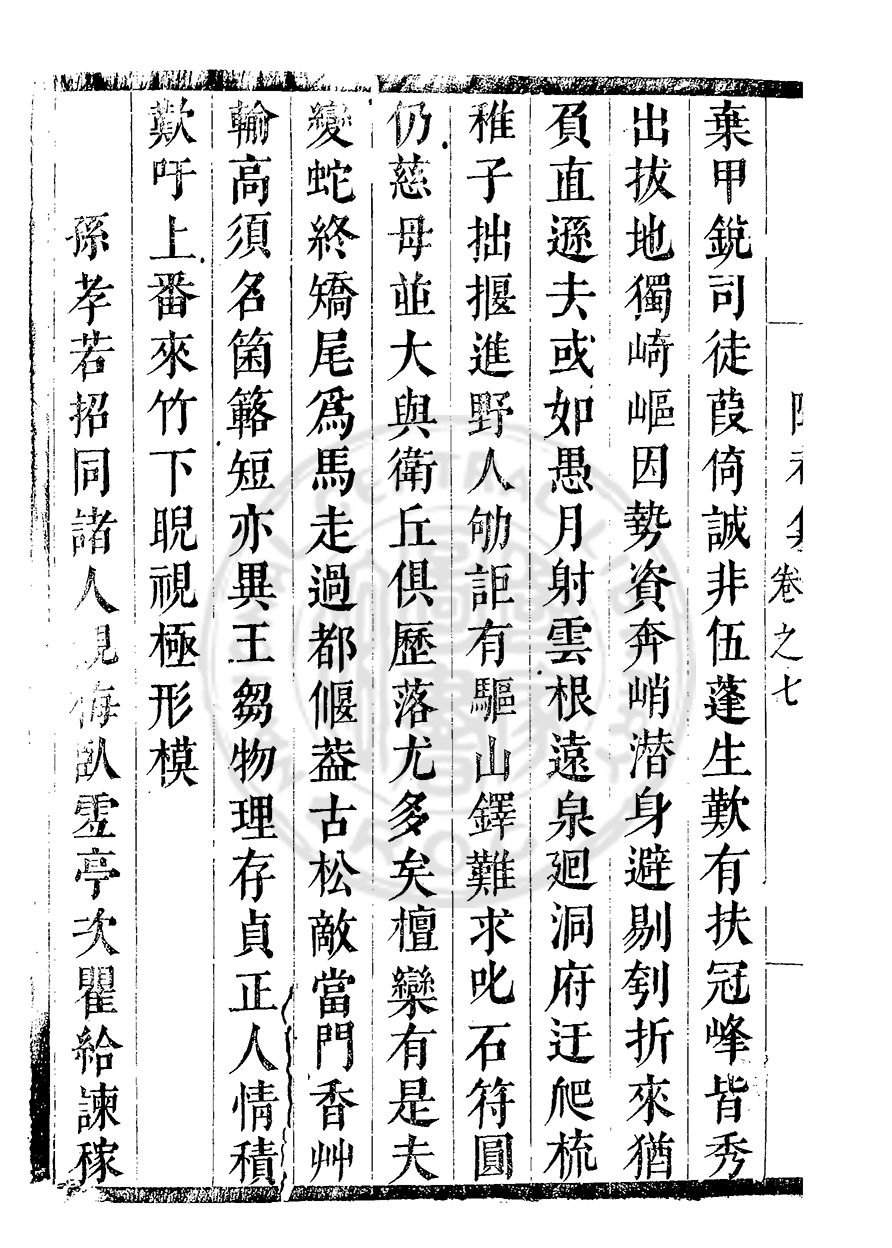 集卷之七
棄甲銳司徒葭倚誠非伍蓬生歎有扶冠峰皆秀
出拔地獨崎嶇因勢資奔峭潛身避剔刳折來猶
負直遜去或如愚月射雲根遠泉廻洞府迂爬梳
稚子拙揠進野人劬詎有驅山鐸難求叱石符圓
仍慈母並大與衛丘俱歷落尤多矣檀欒有是夫
變蛇終矯尾爲馬走過都偃葢古松敵當門香艸
輸高須名箘簵短亦異王芻物理存貞正人情積
歎吁上番來竹下睨視極形模
孫孝若招同諸人臥雲亭次瞿給諫稼